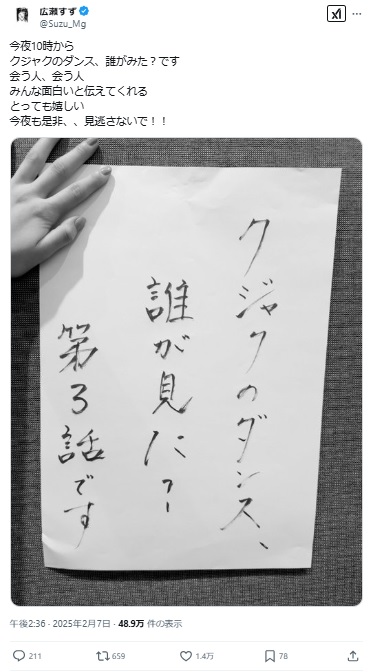 広瀬すず
@Suzu_Mg
今夜10時から
クジャクのダンス、誰がみた？です
会う人、会う人
みんな面白いと伝えてくれる
とっても嬉しい
今夜も是非、、見逃さないで！！
クジャクのダンス、
誰が見た？
第3話です
午後2:36 · 2025年2月7日 · 48.9万 件の表示
211
659
1.4万
78